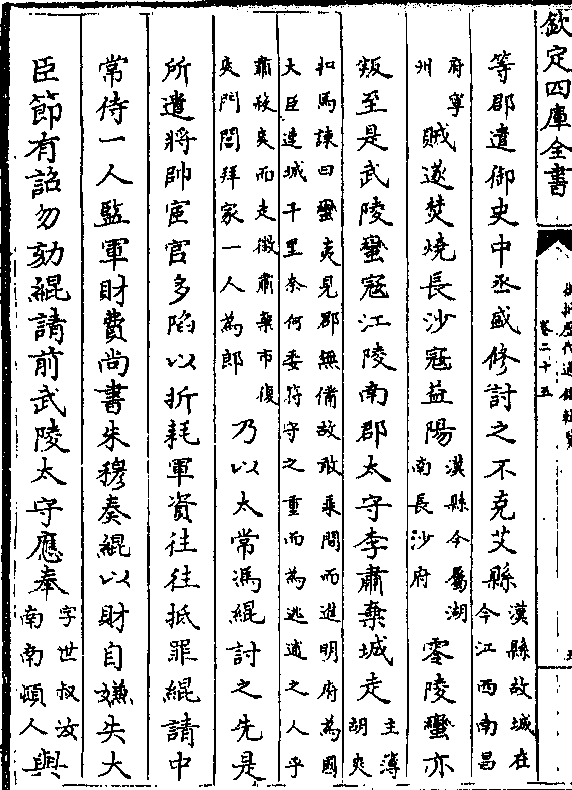 欽定四庫全書
御批歷代通鑑輯覽
卷二十五
等郡遣御史中丞盛修討之不克艾縣漢縣故城在今江西南昌
府寧州賊遂焚燒長沙冦益陽漢縣今屬湖南長沙府零陵蠻亦
叛至是武陵蠻冦江陵南郡太守李肅棄城走主簿胡爽
扣馬諫曰蠻夷見郡無備故敢乗間而進明府為國
大臣連城千里奈何委符守之重而為逃逋之人乎
肅殺爽而走徵肅棄市復爽門閭拜家一人為郎乃以太常馮緄討之先是
所遣將帥宦官多陷以折耗軍資往往抵罪緄請中
常侍一人監軍財費尚書朱穆奏緄以財自嫌失大
臣節有詔勿劾緄請前武陵太守應奉字世叔汝南南頓人與